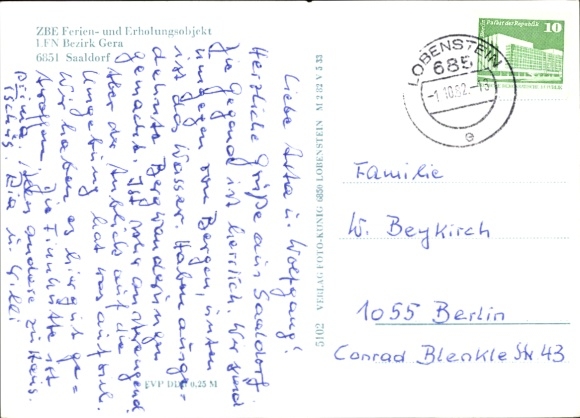 ZBE Ferien- und Erholungsobjekt
LFN Bezirk Gera
6851 Saaldorf
Liebe Asta u. Wolfgang!
Herzliche Grüße aus Saaldorf.
Die Gegend ist herrlich. Wir sind
umgeben von Bergen, unten
ist das Wasser. Haben ausge-
dehnte Bergwanderungen
gemacht. Ist sehr anstrengend
aber der Ausblick auf die
Umgebung hat was auf sich.
Wir haben es hier gut ge-
troffen, die Finnhütte ist
prima, jeden andere zu Haus.
Tschüß. Ria u. Willi
5102 VERLAG FOTO-KÖNIG 6850 LOBENSTEIN M 2/82 V 5 33
EVP DDR 0,25 M
LOBENSTEIN
685
-1.10.82.-13
e
Palast der Republik
10
Familie
W. Beykirch
1055 Berlin
Conrad Blenkle Str 43